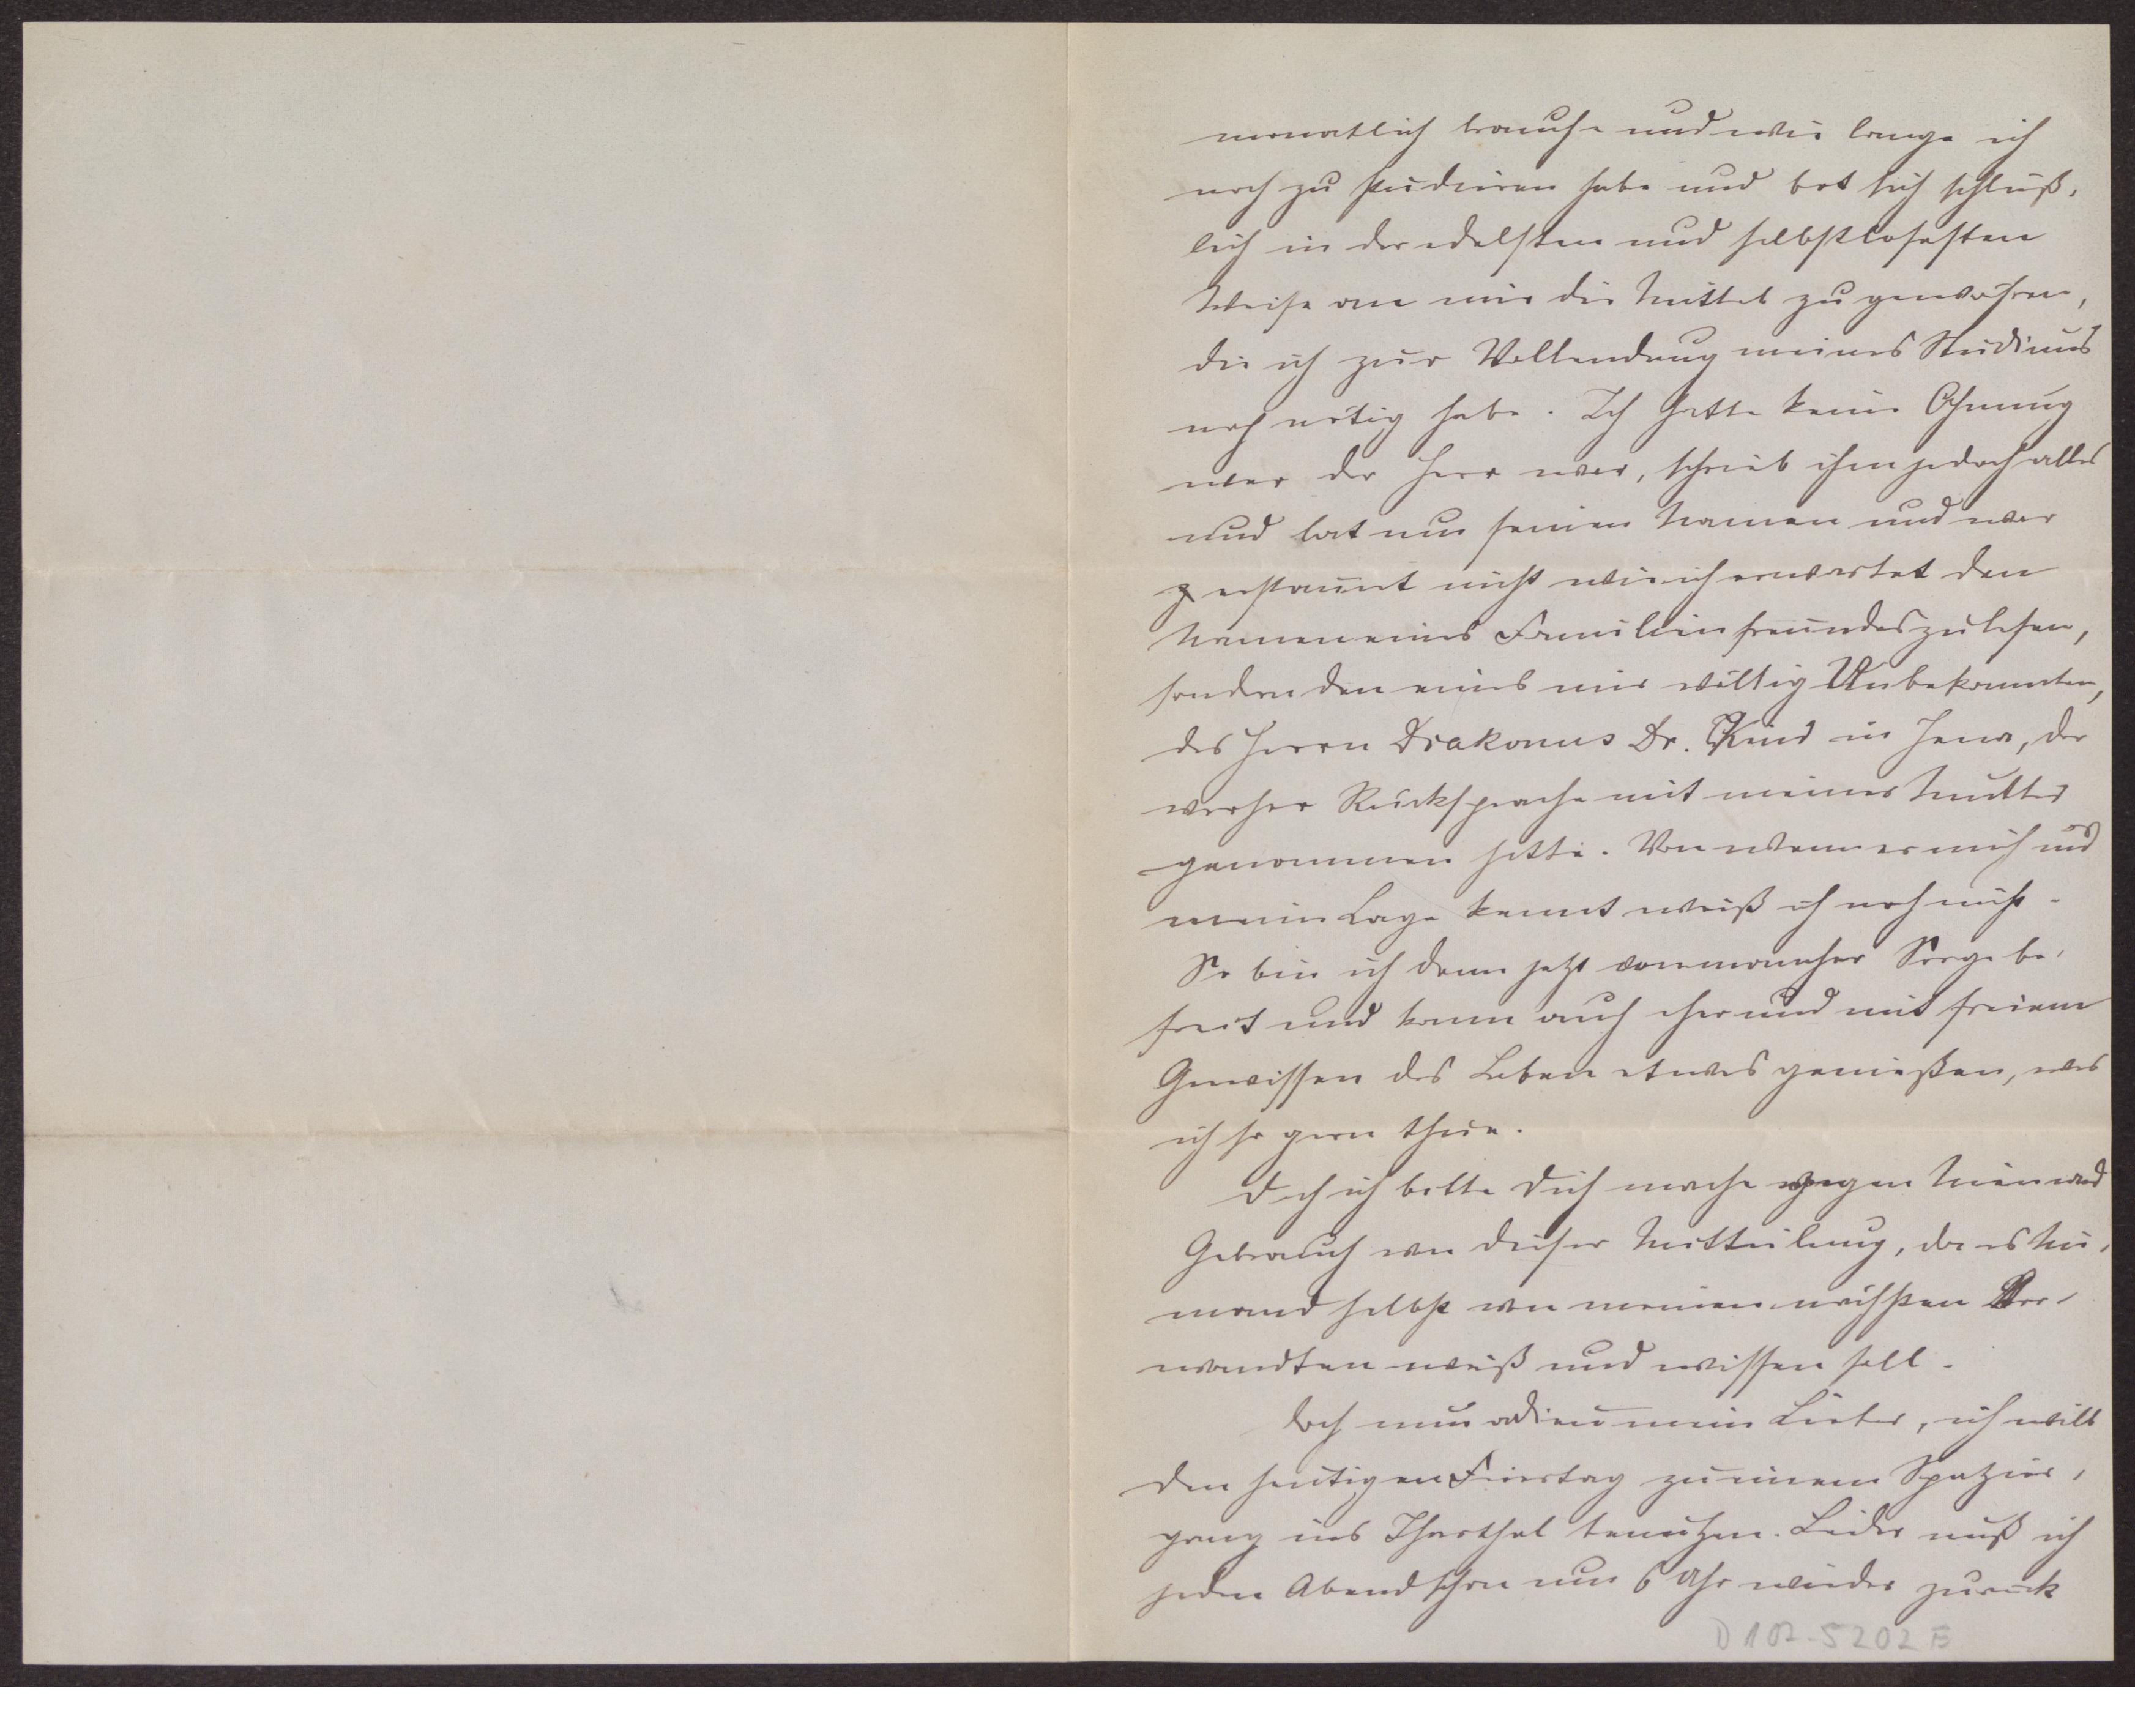 monatlich brauche und wie lange ich
noch zu studieren habe und bot sich schließ-
lich in der edelsten und selbstlosesten
Weise an mir die Mittel zu gewähren,
die ich zur Vollendung meines Studiums
noch nötig habe. Ich hatte keine Ahnung
wer der Herr war, schrieb ihm jedoch alles
und bat um seinen Namen und war
erstaunt nicht wie ich erwartet den
Namen eines Familienfreundes zu lesen,
sondern den eines mir völlig Unbekannten,
des Herrn Diakonus Dr. Kind in Jena, der
vorher Rücksprache mit meiner Mutter
genommen hatte. Von wem er mich und
meine Lage kennt weiß ich noch nicht.
So bin ich denn jetzt von mancher Sorge be-
freit und kann auch eher und mit freiem
Gewissen das Leben etwas genießen, was
ich so gern thue.
Doch ich bitte Dich mache gegen Niemand
Gebrauch von dieser Mitteilung, da es Nie-
mand selbst von meinen nächsten Ver-
wandten weiß und wissen soll.
Doch nun adieu mein Lieber, ich will
den heutigen Feiertag zu einem Spazier-
gang ins Isarthal benutzen. Leider muß ich
jeden Abend schon um 6 Uhr wieder zurück
D 107-5202 B